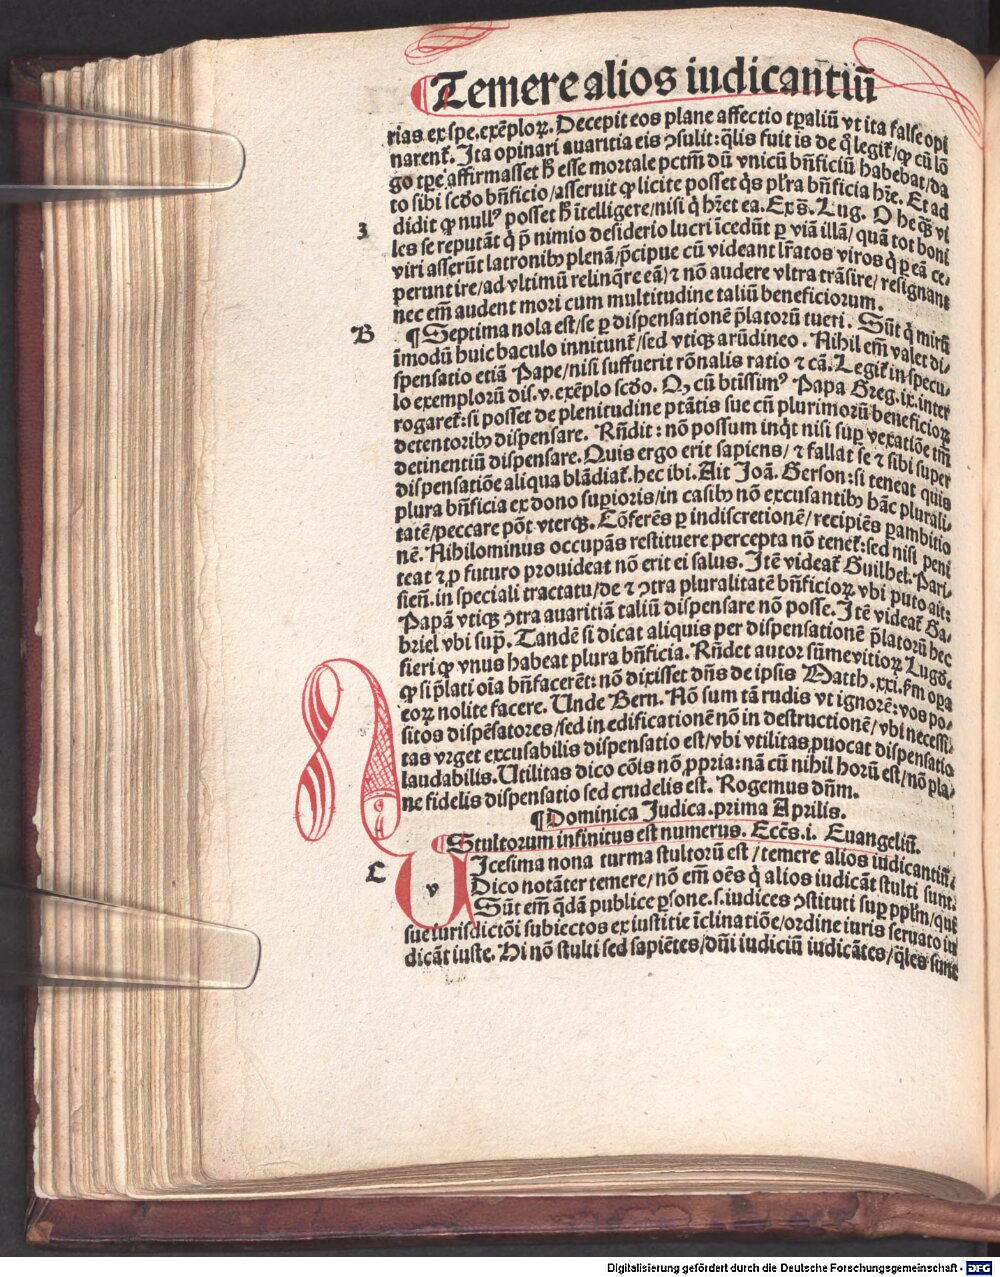 Temere alios iudicantiū
rias ex spe.exēploꝝ. Decepit eos plane affectio tp̄aliū vt ita false opi
narent᷑. Ita opinari auaritia eis ꝯsulit: q̄lis fuit is de q̊ legit᷑/ꝙ cū lō
go tp̄e affirmasset h̄ esse mortale pctm̄ dū vnicū bn̄ficiū habebat/da
to sibi scd̄o bn̄ficio/asseruit ꝙ licite posset q̄s pl̄ra bn̄ficia hr̄e. Et ad
didit ꝙ nullꝰ posset h̄ ītelligere/nisi q̇ hr̄et ea. Ex s̄. Lug. O he qꝫ vi
3
les se reputāt q̇ p̄ nimio desiderio lucri īcedūt ꝑ viā illā/ quā tot boni
viri asserūt latronibꝰ plenā/p̄cipue cū videant lr̄atos viros q̇ ꝑ eā ce-
perunt ire/ad vltimū relinq̄re eā/ ⁊ nō audere vltra trāsire/ resignant
nec em̄ audent mori cum multitudine taliū beneficiorum.
B
¶ Septima nola est/se ꝑ dispensationē p̄latorū tueri. Sūt q̇ mirū
īmodū huic baculo innitunt᷑/sed vtiqꝫ arūdineo. Nihil em̄ valet di-
spensatio etiā Pape/nisi suffuerit rōnalis ratio ⁊ cā. Legit᷑ in specu-
lo exemplorū dis.v.exēplo scd̄o. Qꝫ cū btissimꝰ Papa Greg.ix.inter
rogaret᷑:si posset de plenitudine ptātis sue cū plurimorū beneficioꝝ
detentoribꝰ dispensare. Rn̄dit: nō possum inq̇t nisi suꝑ vexatiōe tm̄
detinentiū dispensare. Quis ergo erit sapiens/ ⁊ fallat se ⁊ sibi super
dispensatiōe aliqua blādiat᷑.hec ibi. Ait Joā. Gerson: si teneat quis
plura bn̄ficia ex dono suꝑioris/in casibꝰ nō excusantibꝰ hāc plurali-
tatē/peccare pōt vterqꝫ. Cōferēs ꝑ indiscretionē/recipiēs ꝑ ambitio
nē. Nihilominus occupās restituere percepta nō tenet᷑:sed nisi peni
teat ⁊ ꝓ futuro prouideat nō erit ei salus. Itē videat᷑ Guilhel. Pari-
sien̄. in speciali tractatu/de ⁊ ꝯtra pluralitatē bn̄ficioꝝ vbi puto ait:
Papā vtiqꝫ ꝯtra auaritiā taliū dispensare nō posse. Itē videat᷑ Ga-
briel vbi sup̄. Tandē si dicat aliquis per dispensationē p̄latorū hec
fieri ꝙ vnus habeat plura bn̄ficia. Rn̄det autor sūmevitioꝝ Lugd̄.
ꝙ si p̄lati oīa bn̄facerēt: nō dixisset dn̄s de ipsis Matth.xxi.ẜm oꝑa
eoꝝ nolite facere. Unde Bern. Nō sum tā rudis vt ignorē: vos po-
sitos dispēsatores/sed in edificationē nō in destructionē/vbi necessi-
tas vrget excusabilis dispensatio est/vbi vtilitas ꝓuocat dispensatio
laudabilis. Utilitas dico cōis nō ꝓpria: nā cū nihil horū est/nō pla-
ne fidelis dispensatio sed crudelis est. Rogemus dn̄m.
¶ Dominica Judica.prima Aprilis.
Stultorum infinitus est numerus. Eccēs.i. Euangeliū.
C
v
Icesima nona turma stultorū est/temere alios iudicantiū.
Dico notāter temere/nō em̄ oēs q̇ alios iudicāt stulti sunt.
Sūt em̄ q̄dā publice ꝑsone.s.iudices ꝯstituti suꝑ pplm̄/qui
sue iurisdictōi subiectos ex iustitie īclinatiōe/ordine iuris seruato iu
dicāt iuste. Hi nō stulti sed sapiētes/dn̄i iudiciū iudicātes/q̄les sunt
Digitalisierung gefördert durch die Deutsche Forschungsgemeinschaft - DFG